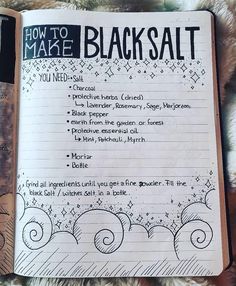 HOW TO
MAKE BLACK SALT
YOU NEED: • Salt
• Charcoal
• protective herbs (dried)
↳ Lavender, Rosemary, Sage, Marjoram
• Black pepper
• earth from the garden or forest
• protective essential oil
↳ Mint, Patchouli, Myrrh
• Mortar
• Bottle
Grind all ingredients until you get a fine powder. Fill the
black Salt / witches Salt in a bottle.